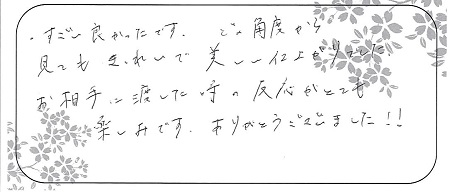 ・すごい良かったです。どの角度から
見てもきれいで美しい仕上がりでした。
お相手に渡した時の反応がとても
楽しみです。ありがとうございました!!